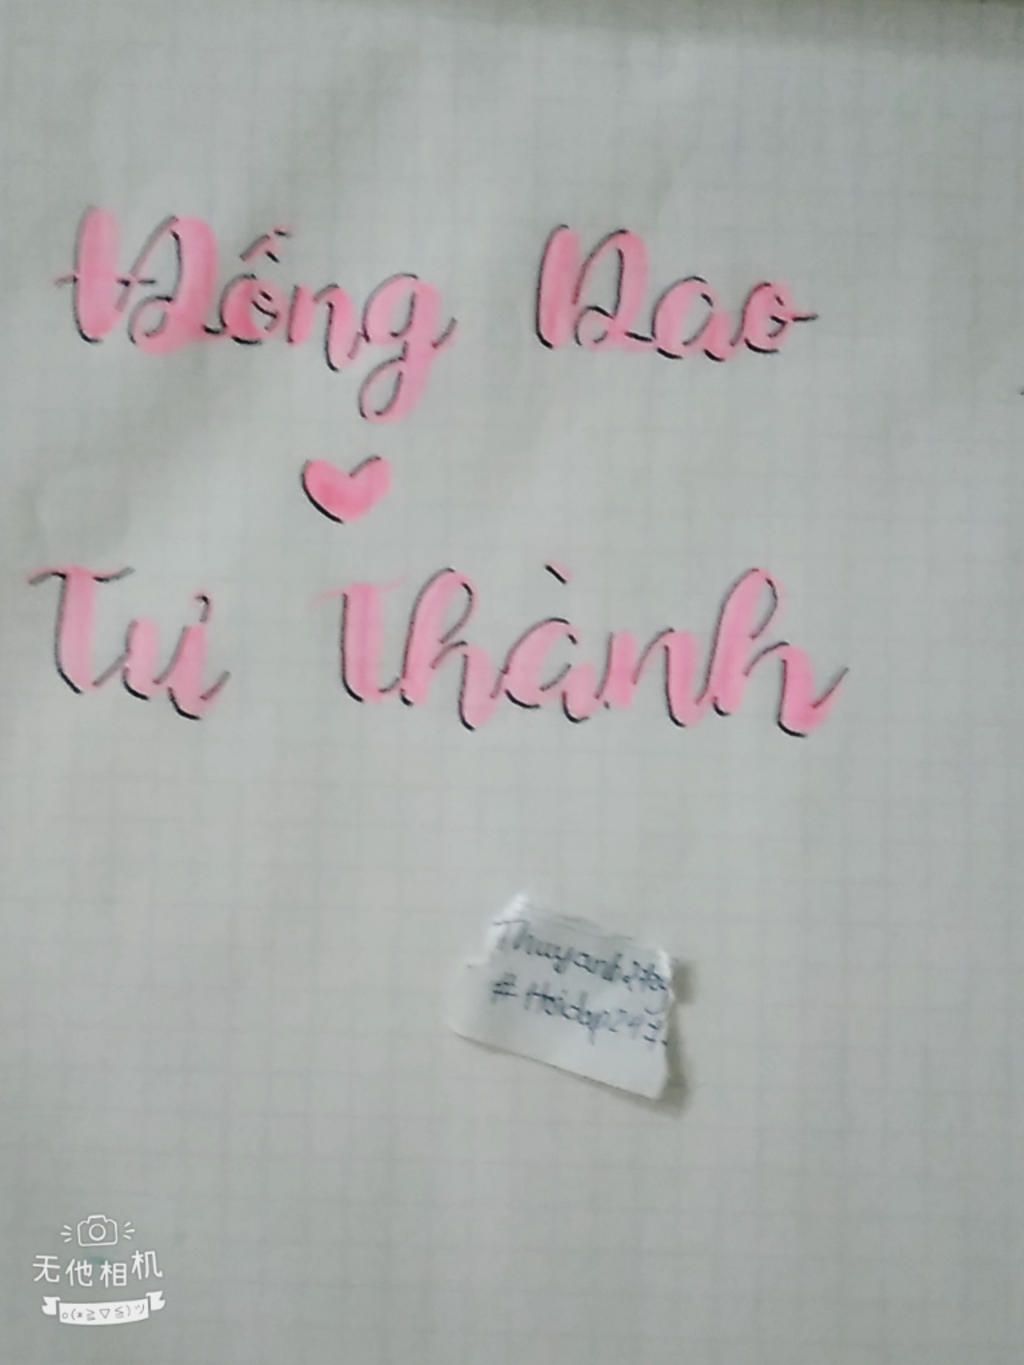 Đống Dao
Tử Thành
#Hoidap247
无他相机
o(*≧▽≦)ツ